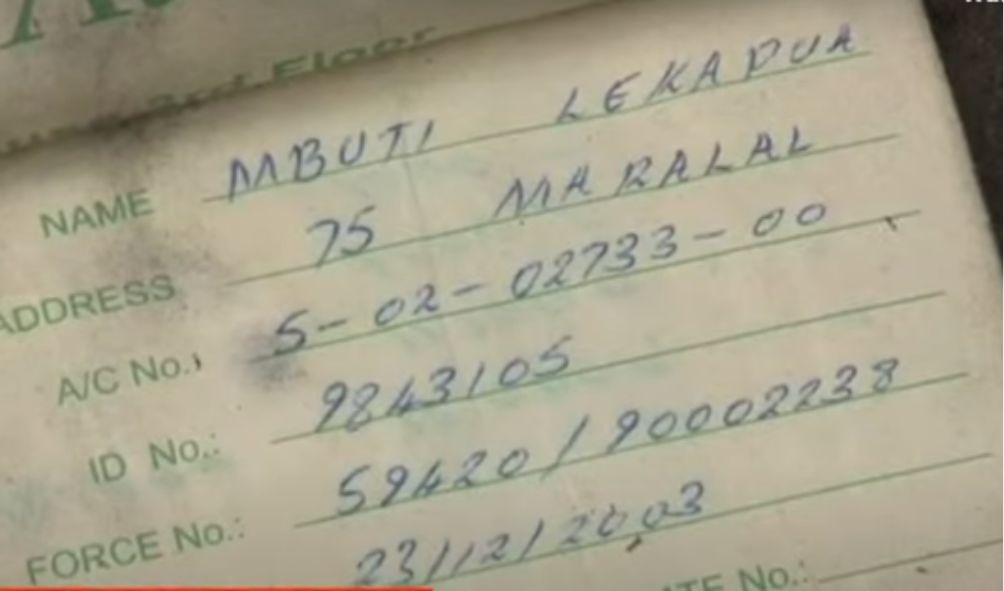 3rd Floor
NAME MBUTI LEKADUA
ADDRESS 75 MARALAL
A/C No.: 5-02-02733-00
ID No.: 9843105
FORCE No.: 59420/90002238
23/12/2003
No.: